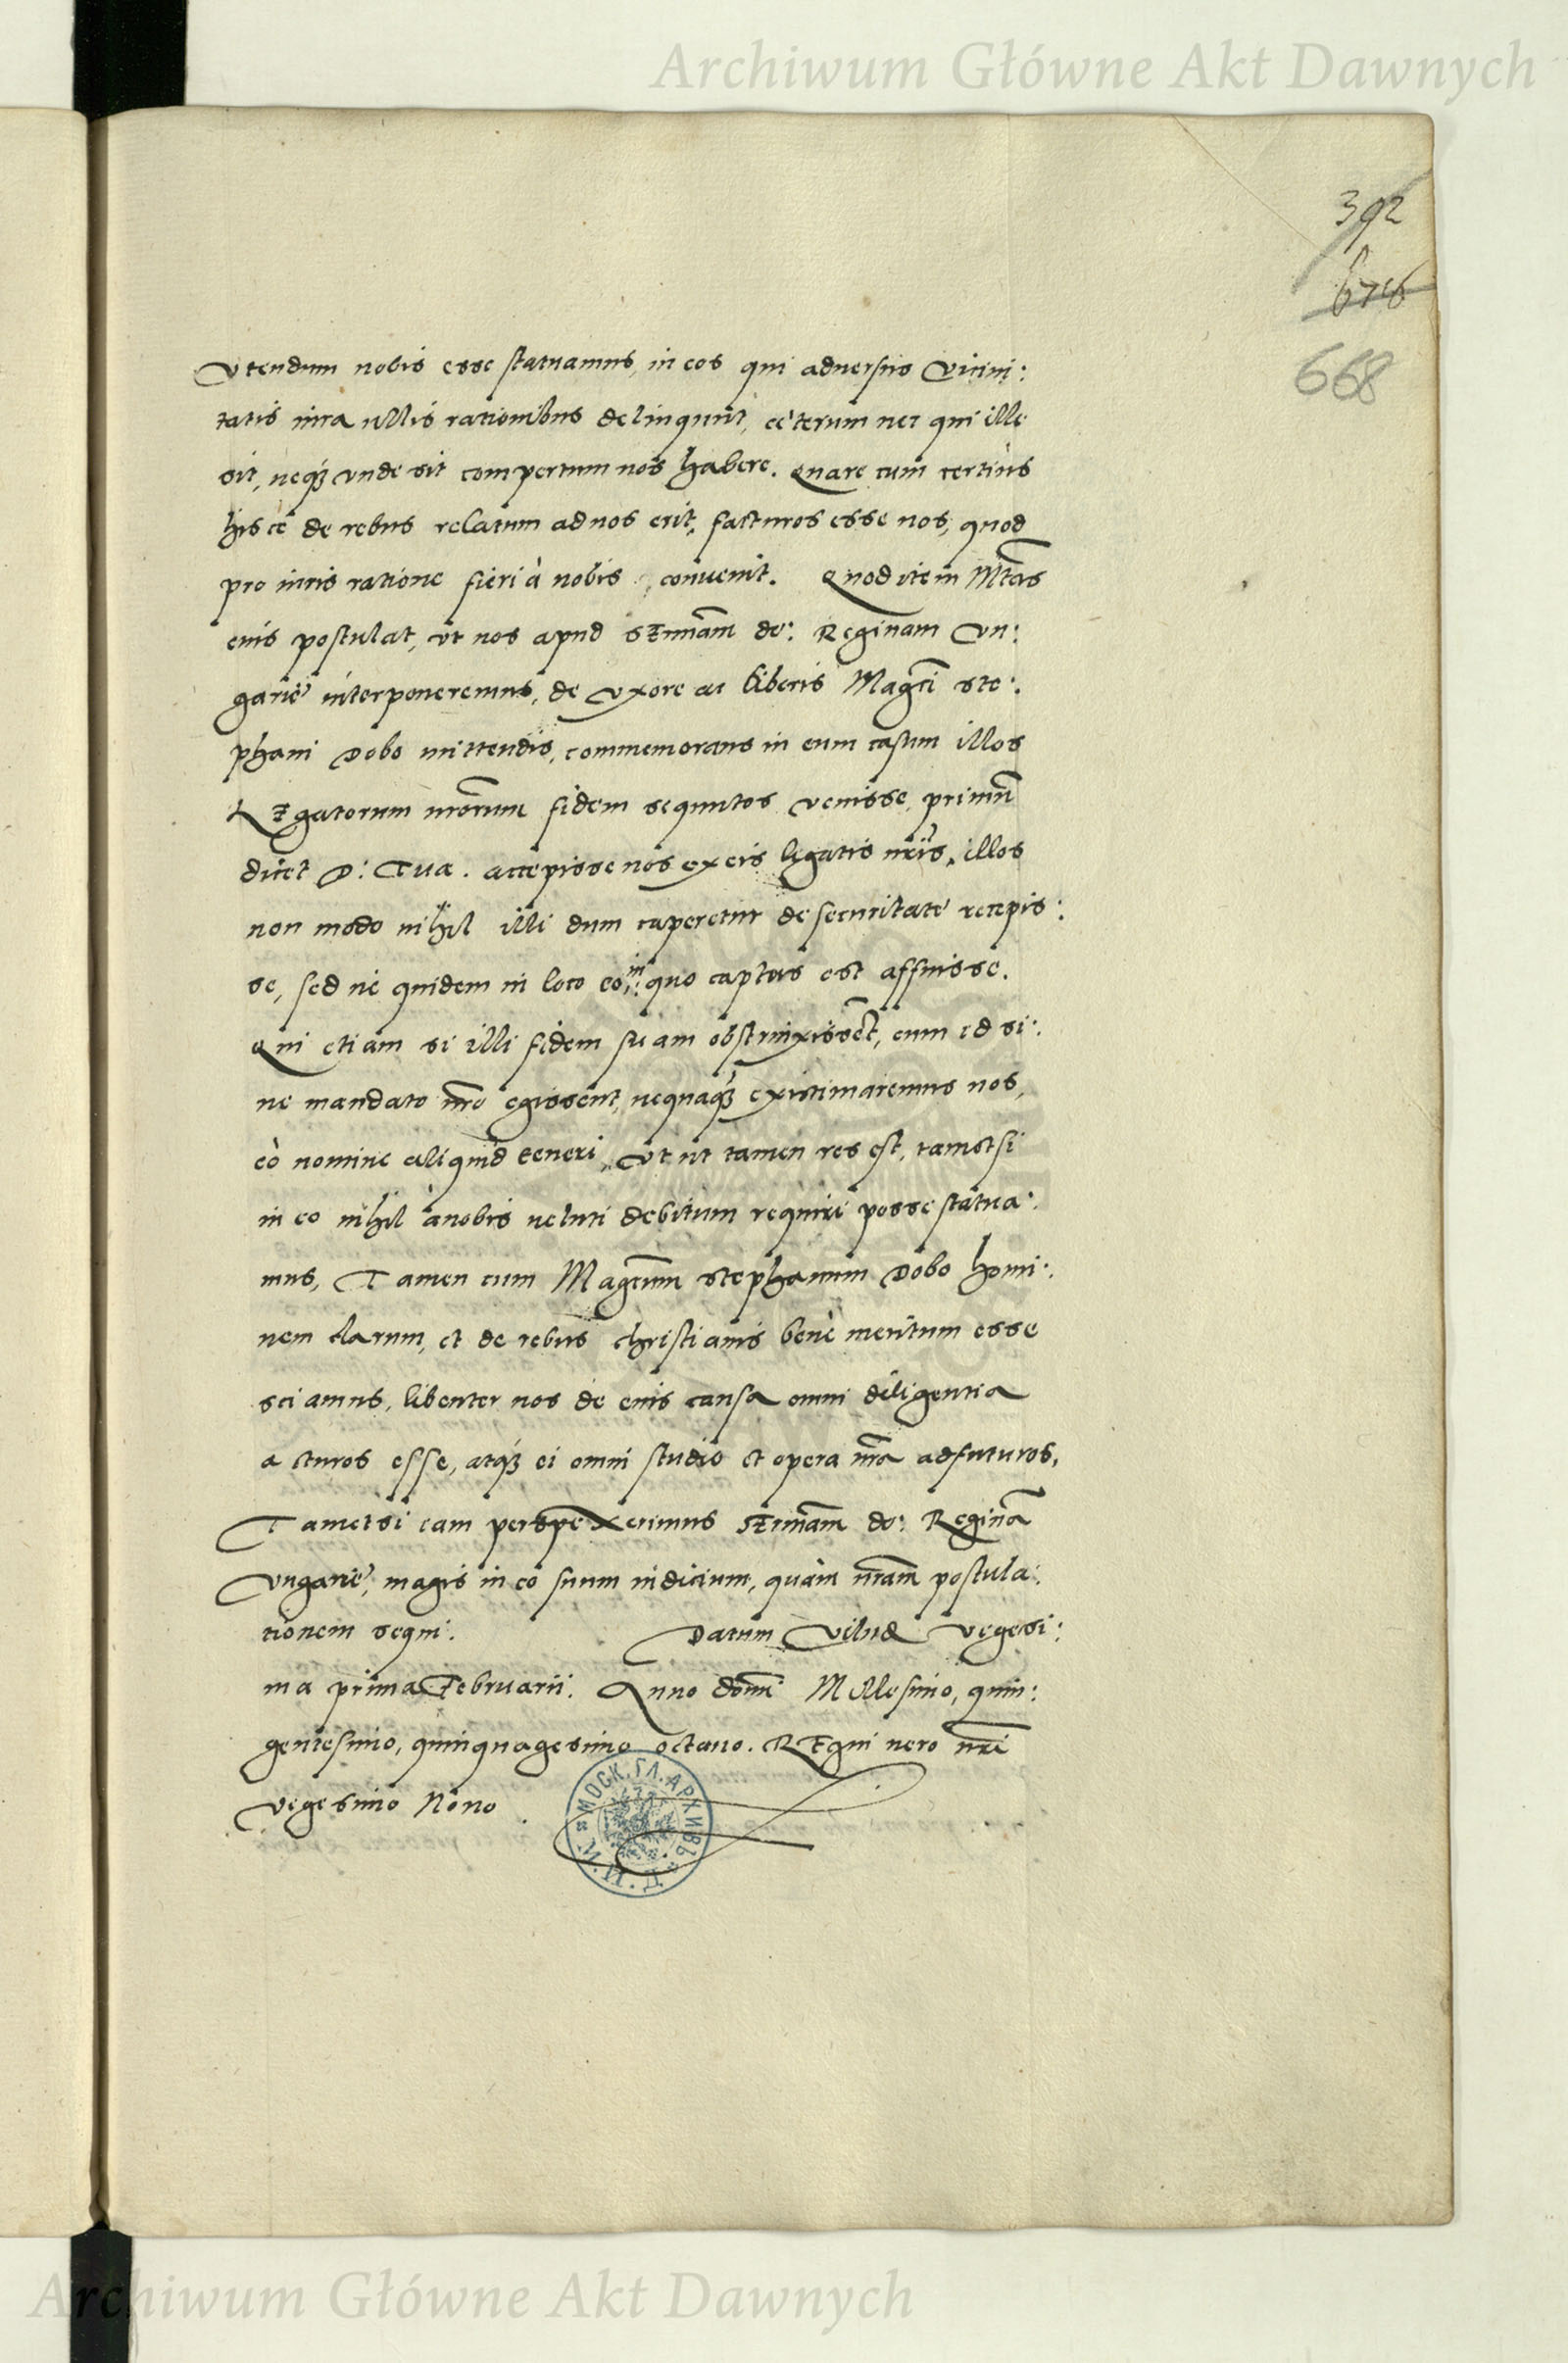 Archiwum Główne Akt Dawnych
392
676
668
Vtendum nobis esse statuamus, in eos qui aduersus Vicini:
tatis iura ullis rationibus delinquunt, ceterum nec qui ille
sit, neq3 vnde sit compertum nos habere. Quare cum certius
hisce de rebus relatum ad nos erit, facturos esse nos, quod
pro iuris ratione fieri à nobis conuenit. Quod item Mtas
eius postulat, vt nos apud sErmam do: Reginam Vn:
garie interponeremus, de vxore ac liberis Magci ste:
phani Dobo mittendis, commemorans in eum casum illos
LEgatorum nrorum fidem sequutos venisse, primum
dicet D: Tua. accepisse nos ex eis legatis nris, illos
non modo nihil illi dum caperetur de securitate recepis:
se, sed ne quidem in loco eo, in quo captus est affuisse.
Qui etiam si illi fidem suam obstrinxissēt, cum id si:
ne mandato nro egissent, nequaq3 existimaremus nos,
eò nomine aliquid teneri, Vt ut tamen res est, tametsi
in eo nihil à nobis veluti debitum requiri posse statua:
mus, Tamen cum Magcum stephanum Dobo homi:
nem clarum, et de rebus christianis benè meritum esse
sciamus, libenter nos de eius causa omni diligentia
acturos esse, atq3 ei omni studio et opera nra adfuturos,
Tametsi eam perspexerimus sErmam do: Reginā
Vngarie, magis in eo suum iudicium, quàm nram postula:
tionem sequi. Datum Vilnae Vegesi:
ma prima Februarii. Anno domi Millesimo, quin:
gentesimo, quinquagesimo octauo. REgni vero nri
Vegesimo Nono
МОСК. ГЛ. АРХИВЪ М. И. Д.
Archiwum Główne Akt Dawnych